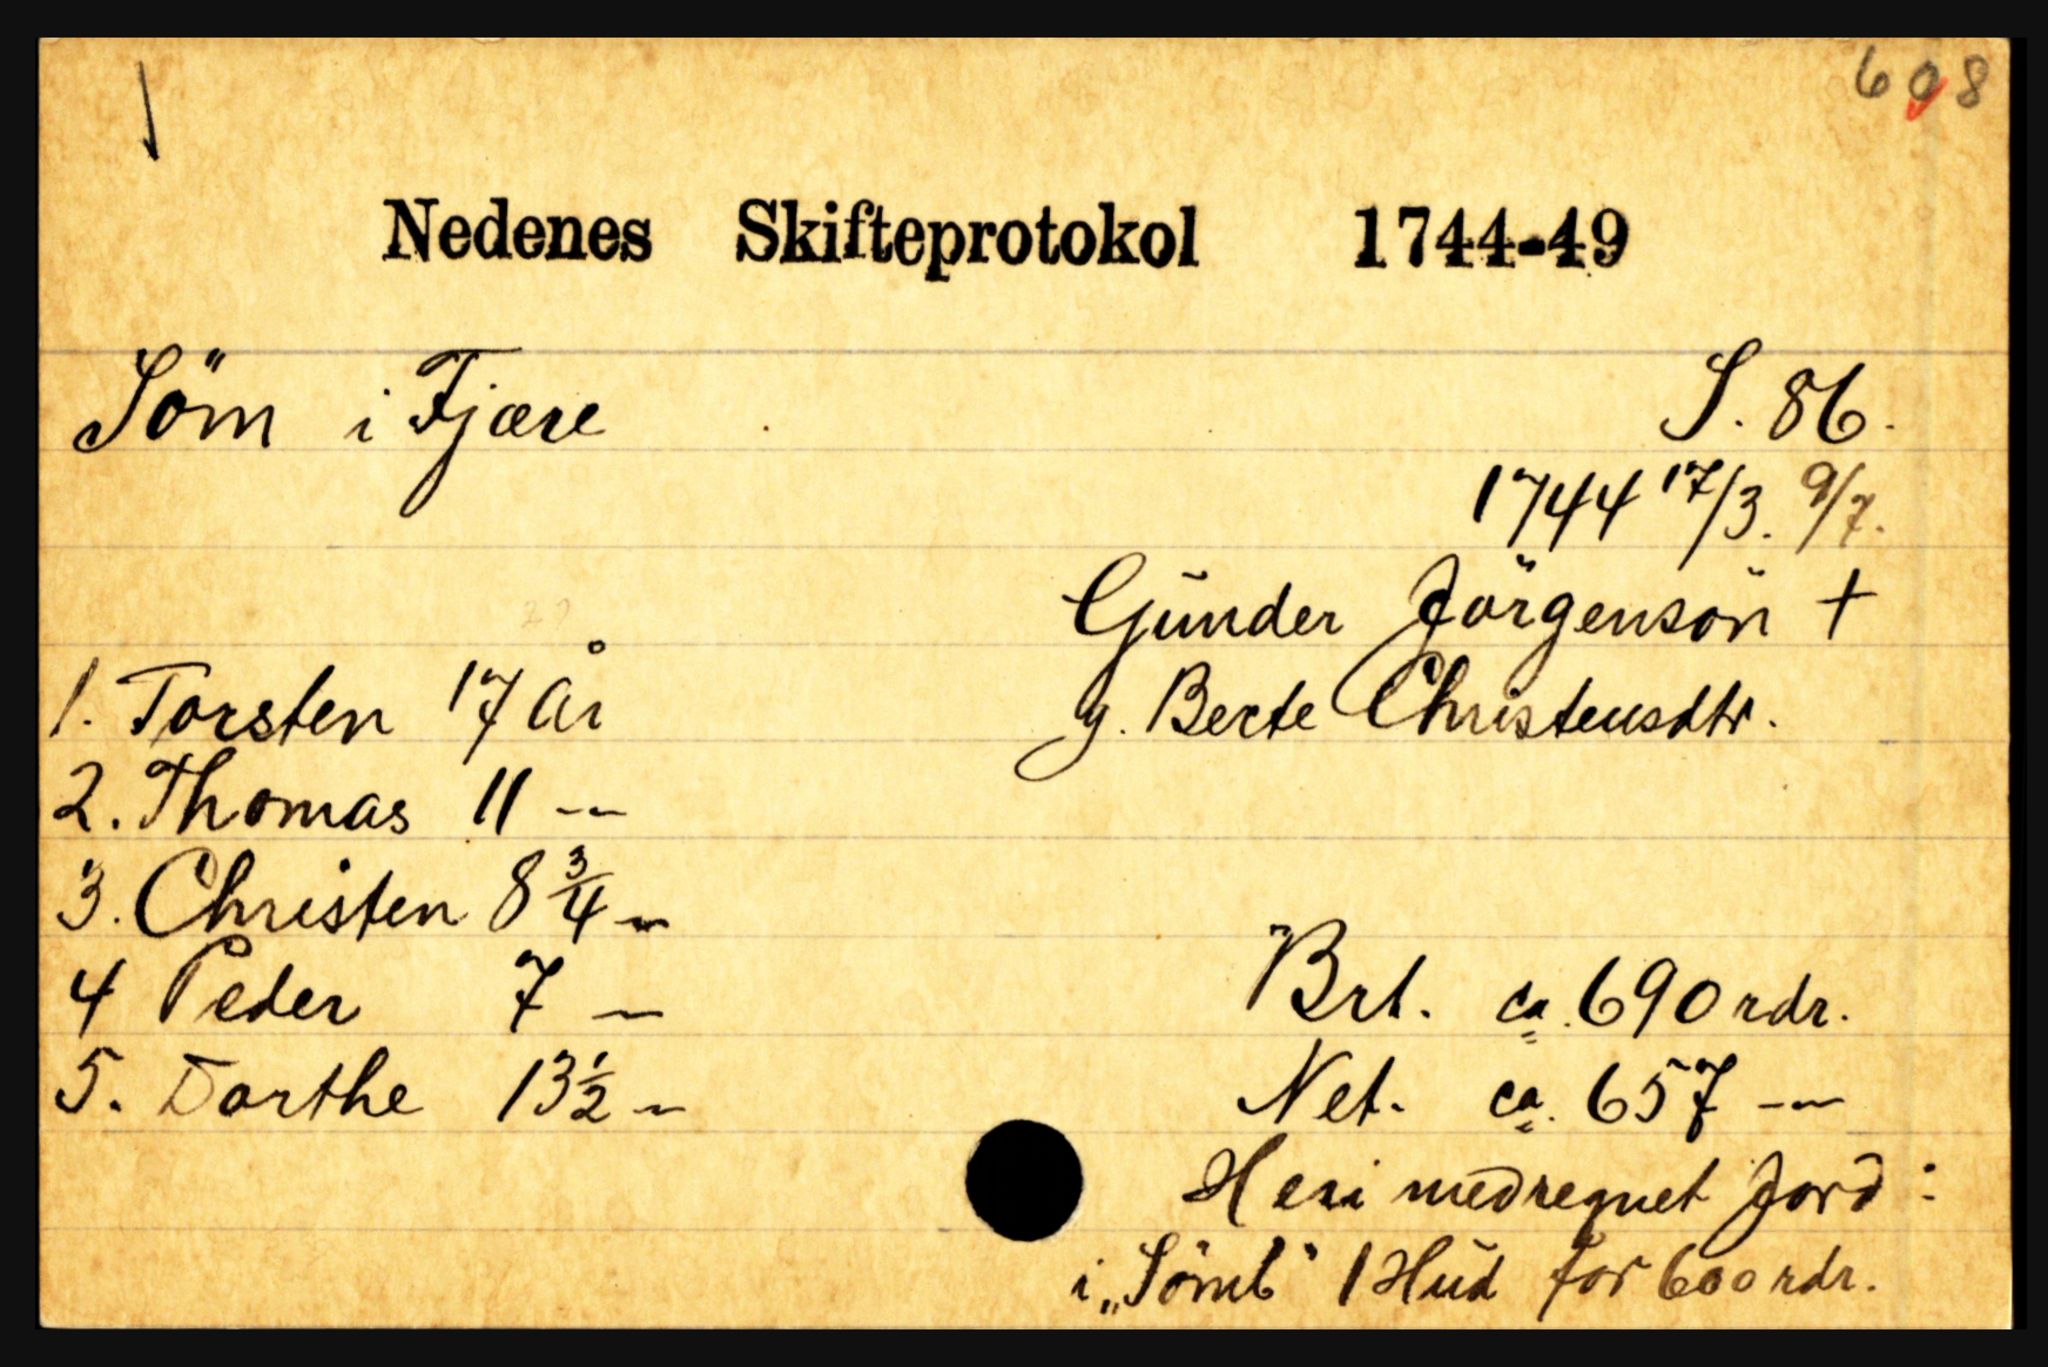 608
Nedenes Skifteprotokol 1744-49
Söm i Fjære S. 86.
1744 17/3. 9/7.
Gunder Jörgensön +
1. Torsten 17 år g. Berte Christensdtr.
2. Thomas 11 -"-
3. Christen 8 3/4 -"-
4 Peder 7 -"- Brt. ca. 690 rdr.
5. Dorthe 13 1/2 -"- Net. ca. 657 -"-
Heri medregnet Jord:
i „Sömb" 1 Hud for 600 rdr.